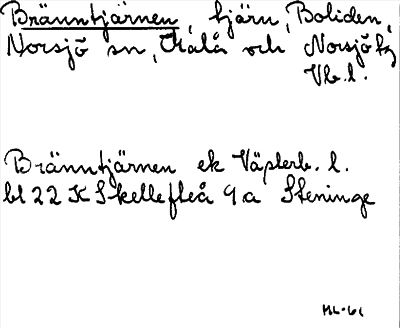 Bränntjärnen, tjärn, Boliden,
Norsjö sn, Malå och Norsjö tg
Vb. l.
Bränntjärnen ek Västerb. l.
bl 22 K Skellefteå 9 a Steninge
ML-61